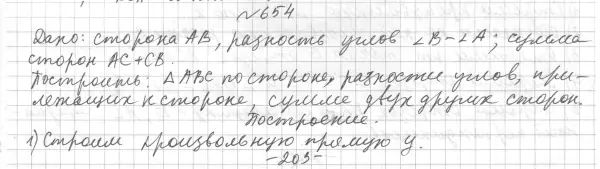 №654
Дано: сторона АВ, разность углов ∠В-∠А; сумма
сторон АС+СВ.
Построить: △АВС по стороне, разности углов, при-
лежащих к стороне, сумме двух других сторон.
Построение.
1) Строим произвольную прямую y.
-203-